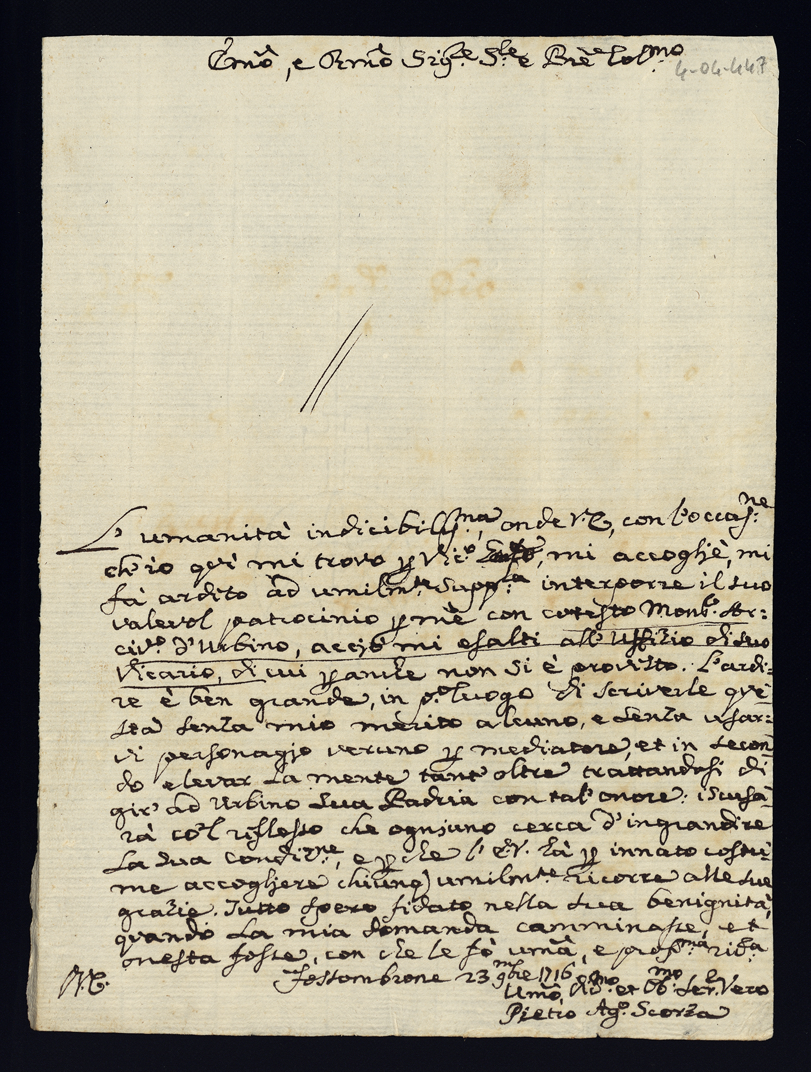 Emô, e Rmô Sigre Sre e Prñe Colmo
4-04-447
L'umanità indicibiliss:ma, onde V.E., con l'occas:ne
ch'io quì mi trovo p Vic:o, mi accogliè, mi
fà ardito àd umilmte Suppla interporre il suo
valevol patrocinio p mè con cotesto Monsr Ar:
civo d'Urbino, acciò mi esalti all'Uffizio di suo
Vicario, di cui p anche non si è provisto. L'ardi:
re è ben grande, in po luogo di scriverle que
sta senza mio merito alcuno, e senza usar:
vi personagio veruno p mediatore, et in secon
do elevar la mente tant'oltre trattandosi di
gir' ad Urbino sua Padria con tal'onore: iscusa
rà co'l riflesso che ognjuno cerca d'ingrandire
la sua condizne, e p che l'E.V. hà p innato costu:
me accogliere chiunq umilmte ricorre alle sue
grazie. Tutto spero fidato nella sua benignità,
quando la mia domanda camminasse, et
onesta fosse, con che le fò umâ, e profma rivza
Fossombrone 23 9mbre 1716
V.E.
Umô, Divmo et Obbmo Serre Vero
Pietro Ago Scorza